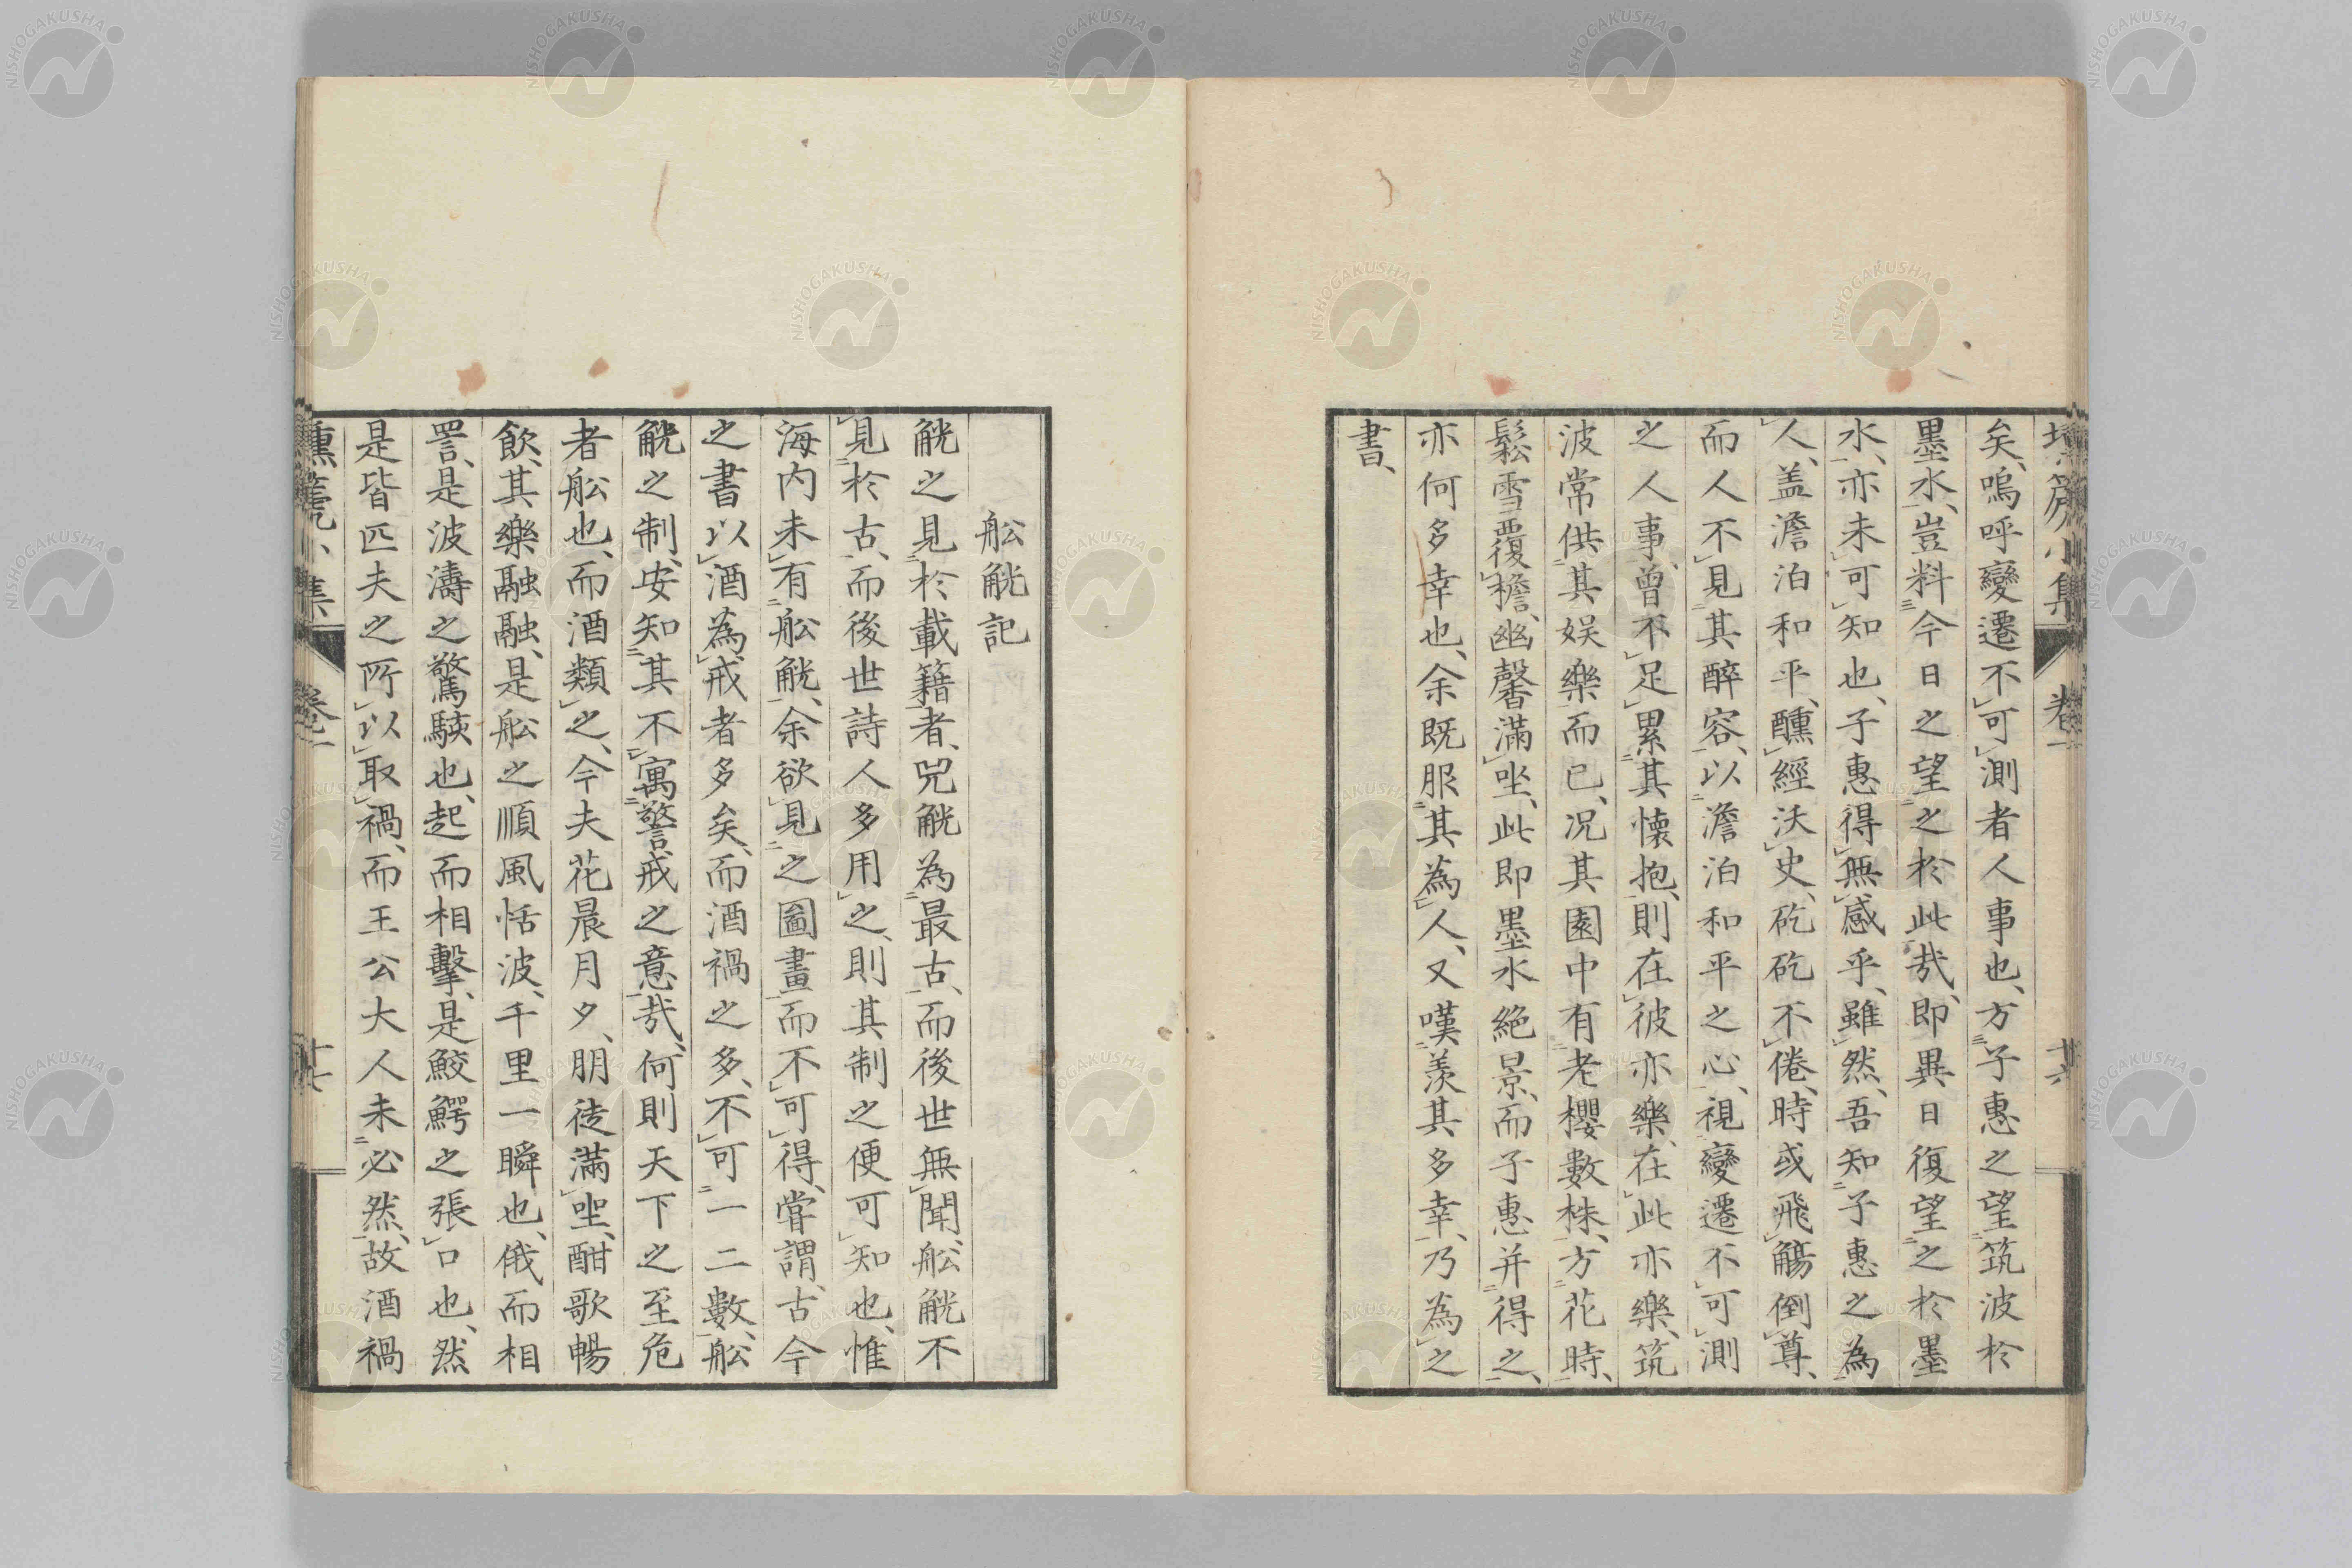 矣、嗚呼變遷不可測者人事也、方子惠之望筑波於
墨水、豈料今日之望之於此哉、即異日復望之於墨
水、亦未可知也、子惠得無感乎、雖然、吾知子惠之為
人、盖澹泊和平、醺經沃史、矻矻不倦、時或飛觴倒尊、
而人不見其醉容、以澹泊和平之心、視變遷不可測
之人事、曾不足累其懷抱、則在彼亦樂、在此亦樂、筑
波常供其娱樂而已、况其園中有老櫻數株、方花時、
鬆雪覆檐、幽馨滿坐、此即墨水絶景、而子惠并得之、
亦何多幸也、余既服其為人、又嘆羨其多幸、乃為之
書、
舩觥記
觥之見於載籍者、兕觥為最古、而後世無聞、舩觥不
見於古、而後世詩人多用之、則其制之便可知也、惟
海内未有舩觥、余欲見之圖畫而不可得、嘗謂、古今
之書以酒為戒者多矣、而酒禍之多、不可一二數、舩
觥之制、安知其不寓警戒之意哉、何則天下之至危
者舩也、而酒類之、今夫花晨月夕、朋徒滿坐、酣歌暢
飲、其樂融融、是舩之順風恬波、千里一瞬也、俄而相
詈、是波濤之驚駭也、起而相擊、是鮫鰐之張口也、然
是皆匹夫之所以取禍、而王公大人未必然、故酒禍
壎篪小集
卷一
十七
NISHOGAKUSHA